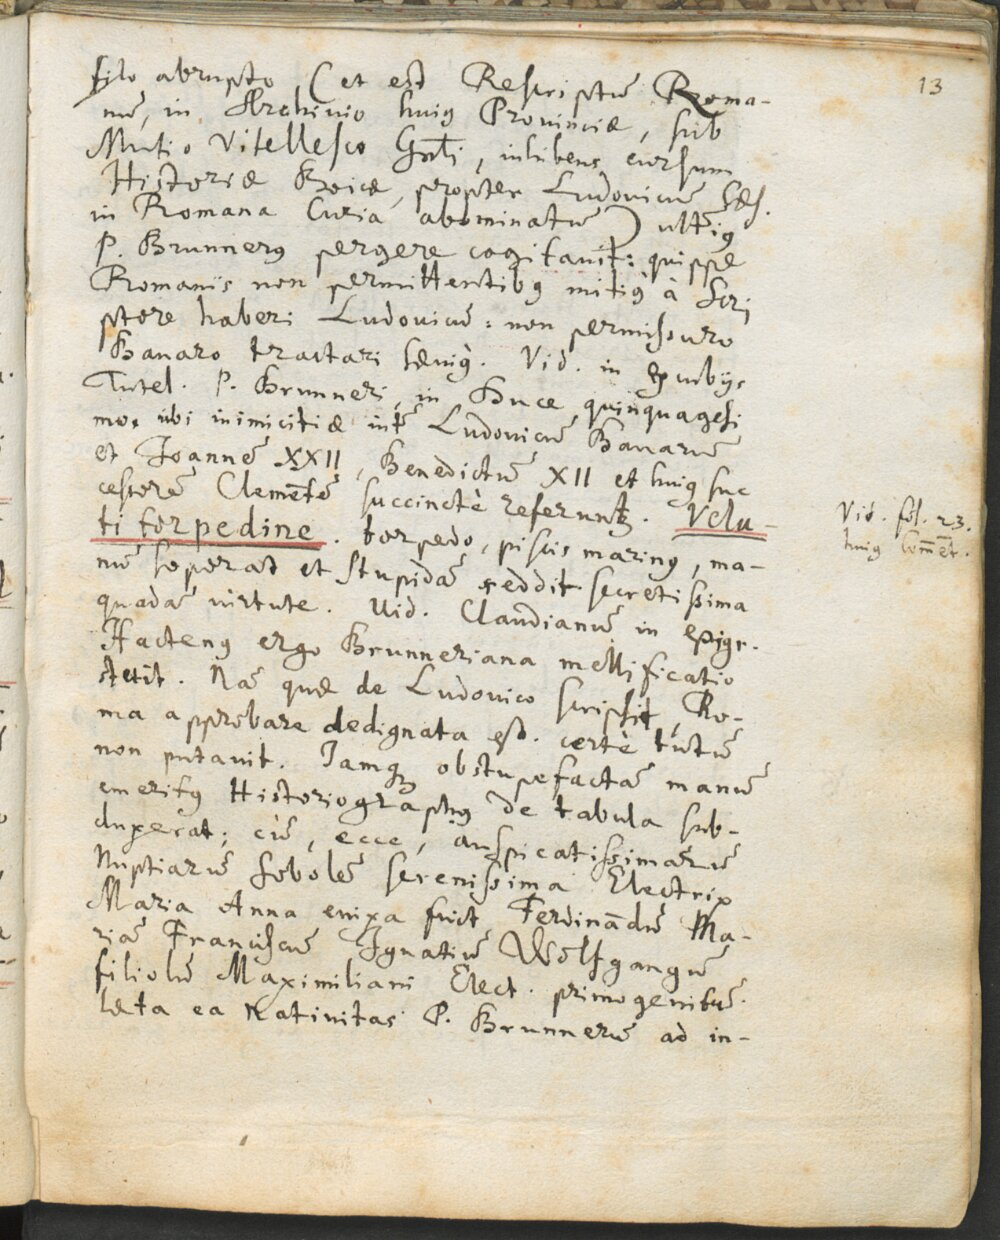 13
filo abrupto (et est Rescriptū Roma-
nū, in Archivio huiꝰ Provinciæ, sub
Mutio Vitellesco Gnli, inhibens cursum
Historiæ Boicæ, propter Ludovicum Cæs.
in Romana Curia abominatū) ulteriꝰ
P. Brunnerꝰ pergere cogitavit: quippe
Romanis non permittentibꝰ mitiꝰ à Scri
ptore haberi Ludovicū: non permissuro
Bavaro tractari sæviꝰ. Vid. in Excubijs
Tutel. P. Brunneri, in Duce quinquagesi
mo, ubi inimicitiæ intē Ludovicū Bavarū
et Joannē XXII, Benedictū XII et huiꝰ suc
cessorē Clemētē succinctè referuntꝛ. Velu-
ti torpedine. torpedo, piscis marinꝰ, ma-
nū soporat et stupidā reddit secretissima
quadā virtute. Vid. Claudianū in epigr.
Hactenꝰ ergo Brunneriana mellificatio
stetit. Nā quæ de Ludovico scripsit, Ro-
ma approbare dedignata est. certè tutū
non putavit. Jamqꝫ obstupefactā manū
emeritꝰ Historiographꝰ de tabula sub-
duxerat; cū, ecce, auspicatissimarū
Nuptiarū sobolē serenissima Electrix
Maria Anna enixa fuit Ferdinādū Ma-
riā Franciscū Ignatiū Wolfgangū
filiolū Maximiliani Elect. primogenitū.
læta ea Nativitas P. Brunnerū ad in-
Vid. fol. 23.
huiꝰ Com̄ēt.